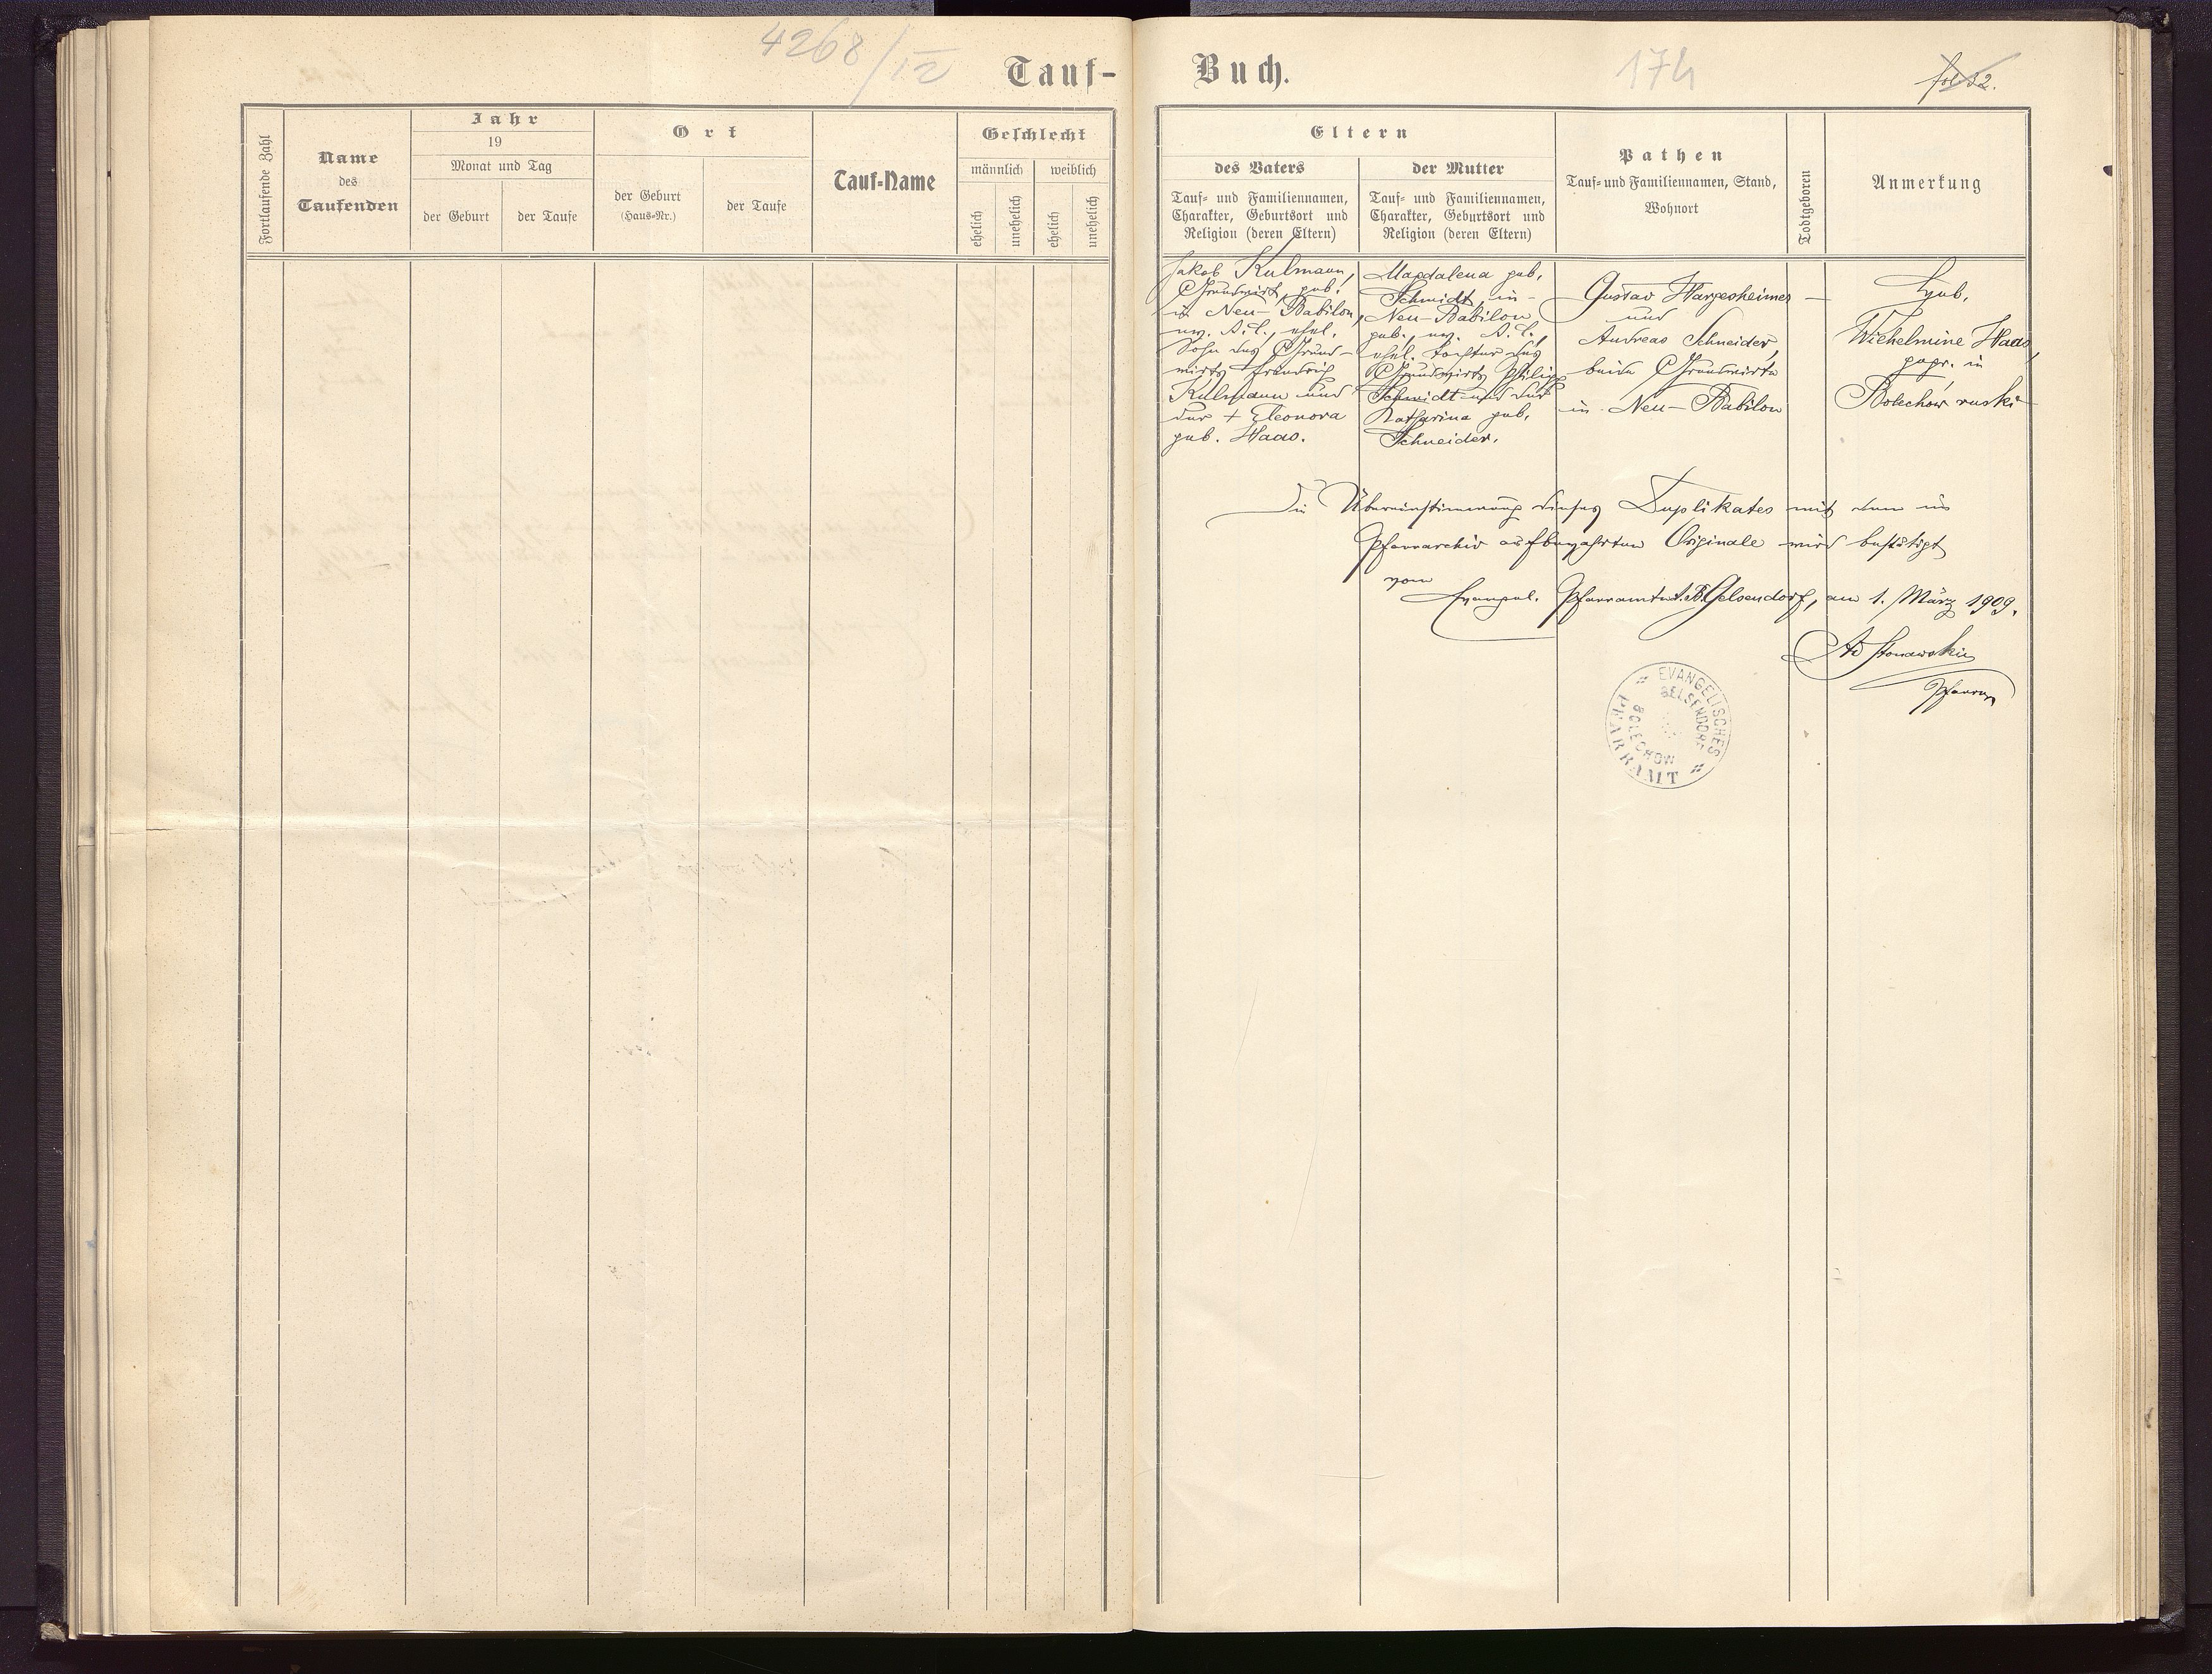 4268/IV
Tauf-
Fortlaufende Zahl
Name
des
Taufenden
Jahr
19
Monat und Tag
der Geburt
der Taufe
Ort
der Geburt
(Haus-Nr.)
der Taufe
Tauf-Name
Geschlecht
männlich
weiblich
ehelich
unehelich
ehelich
unehelich
Buch.
174
fol 32.
Eltern
des Vaters
Tauf- und Familiennamen,
Charakter, Geburtsort und
Religion (deren Eltern)
der Mutter
Tauf- und Familiennamen,
Charakter, Geburtsort und
Religion (deren Eltern)
Pathen
Tauf- und Familiennamen, Stand,
Wohnort
Todtgeboren
Anmerkung
Jakob Kulmann,
Grundwirt, geb.
in Neu-Babilon,
ev. A.C., ehel.
Sohn des Grund-
wirts Friedrich
Kulmann und
der + Eleonora
geb. Haas.
Magdalena geb.
Schmidt, in
Neu-Babilon
geb., ev. A.C.,
ehel. Tochter des
Grundwirts Philipp
Schmidt und der
Katharina geb.
Schneider.
Gustav Hargesheimer
und
Andreas Schneider,
beide Grundwirte
in Neu-Babilon
Heb.
Wilhelmine Haas,
gepr. in
Bolechów ruski
Die Übereinstimmung dieses Duplikates mit dem im
Pfarrarchiv aufbewahrten Originale wird bestätigt
vom
Evangel. Pfarramte A.B. Gelsendorf, am 1. März 1909.
Pfarrer
EVANGELISCHES
PFARRAMT
GELSENDORF
BOLECHOW